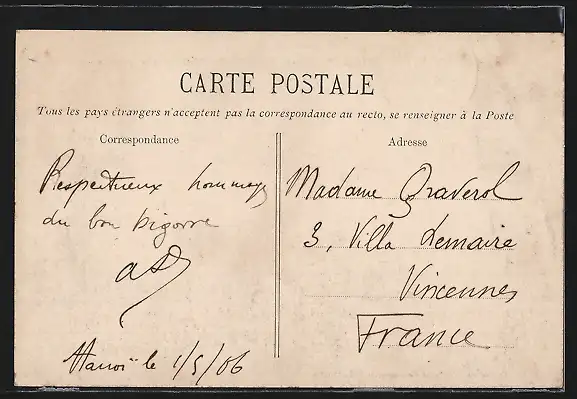 CARTE POSTALE
Tous les pays étrangers n'acceptent pas la correspondance au recto, se renseigner à la Poste
Correspondance
Respectueux hommages
du bon bigorre
Hanoï le 1/5/06
Adresse
Madame Graverol
3, Villa Lemaire
Vincennes
France